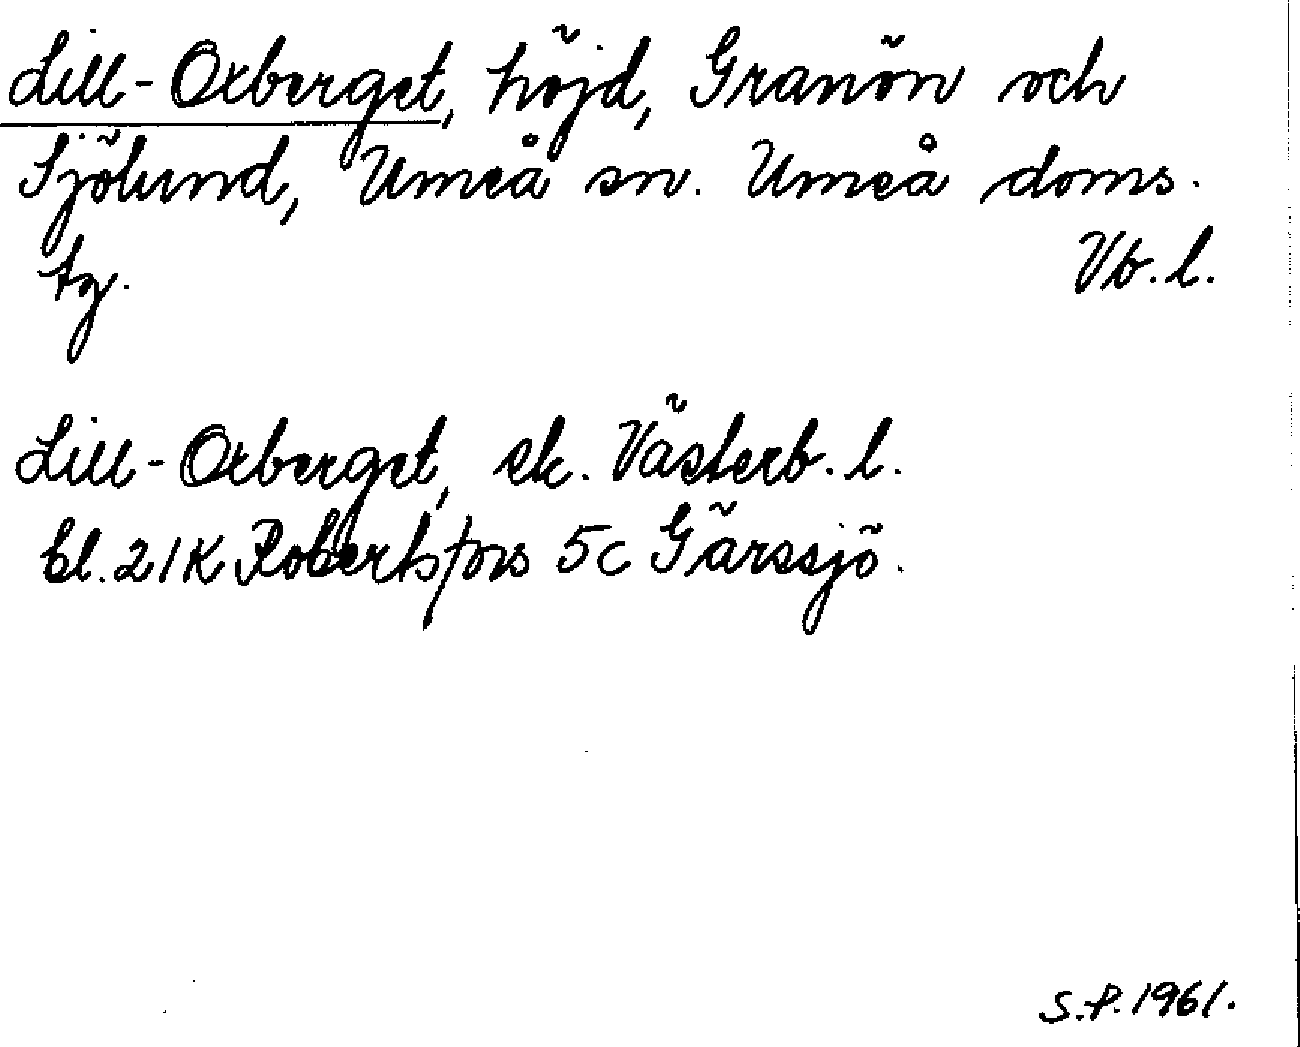 Lill-Oxberget, höjd, Granön och
Sjölund, Umeå sn. Umeå doms.
tg. Vb. l.
Lill-Oxberget, ek. Västerb. l.
bl. 21K Robertsfors 5c Gärssjö.
S.P. 1961.